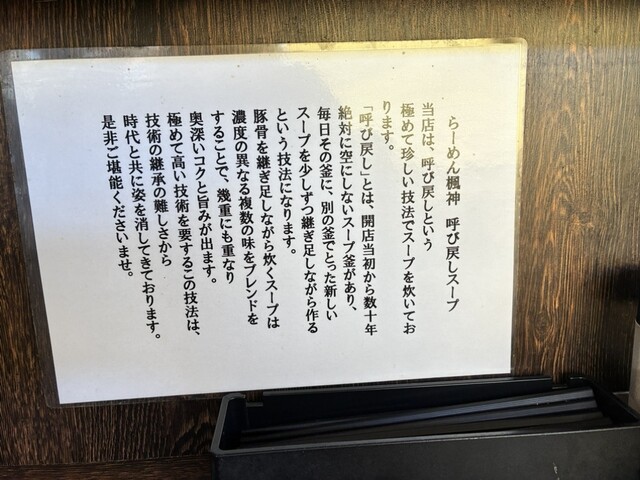 らーめん楓神 呼び戻しスープ
当店は、呼び戻しという
極めて珍しい技法でスープを炊いてお
ります。
「呼び戻し」とは、開店当初から数十年
絶対に空にしないスープ釜があり、
毎日その釜に、別の釜でとった新しい
スープを少しずつ継ぎ足しながら作る
という技法になります。
豚骨を継ぎ足しながら炊くスープは
濃度の異なる複数の味をブレンドを
することで、幾重にも重なり
奥深いコクと旨みが出ます。
極めて高い技術を要するこの技法は、
技術の継承の難しさから
時代と共に姿を消してきております。
是非ご堪能くださいませ。